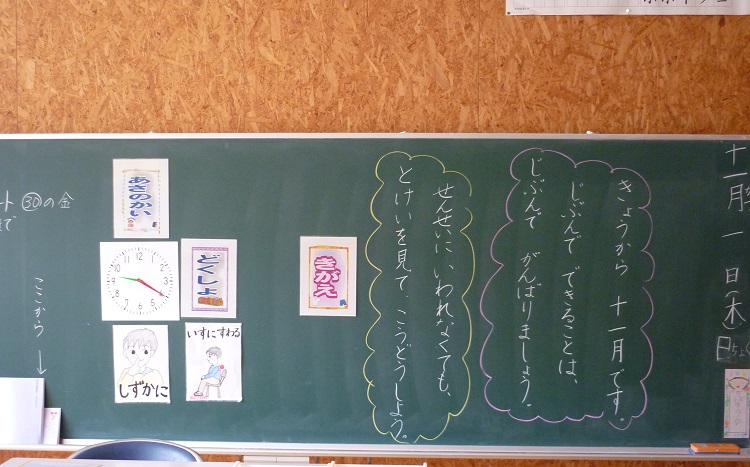 十一月一日(木)
きょうから 十一月です。
じぶんで できることは、
じぶんで がんばりましょう。
せんせいに いわれなくても、
とけいを見て、こうどうしよう。
きがえ
あさのかい
どくしょ
いすにすわる
しずかに
㉚の金
ここから